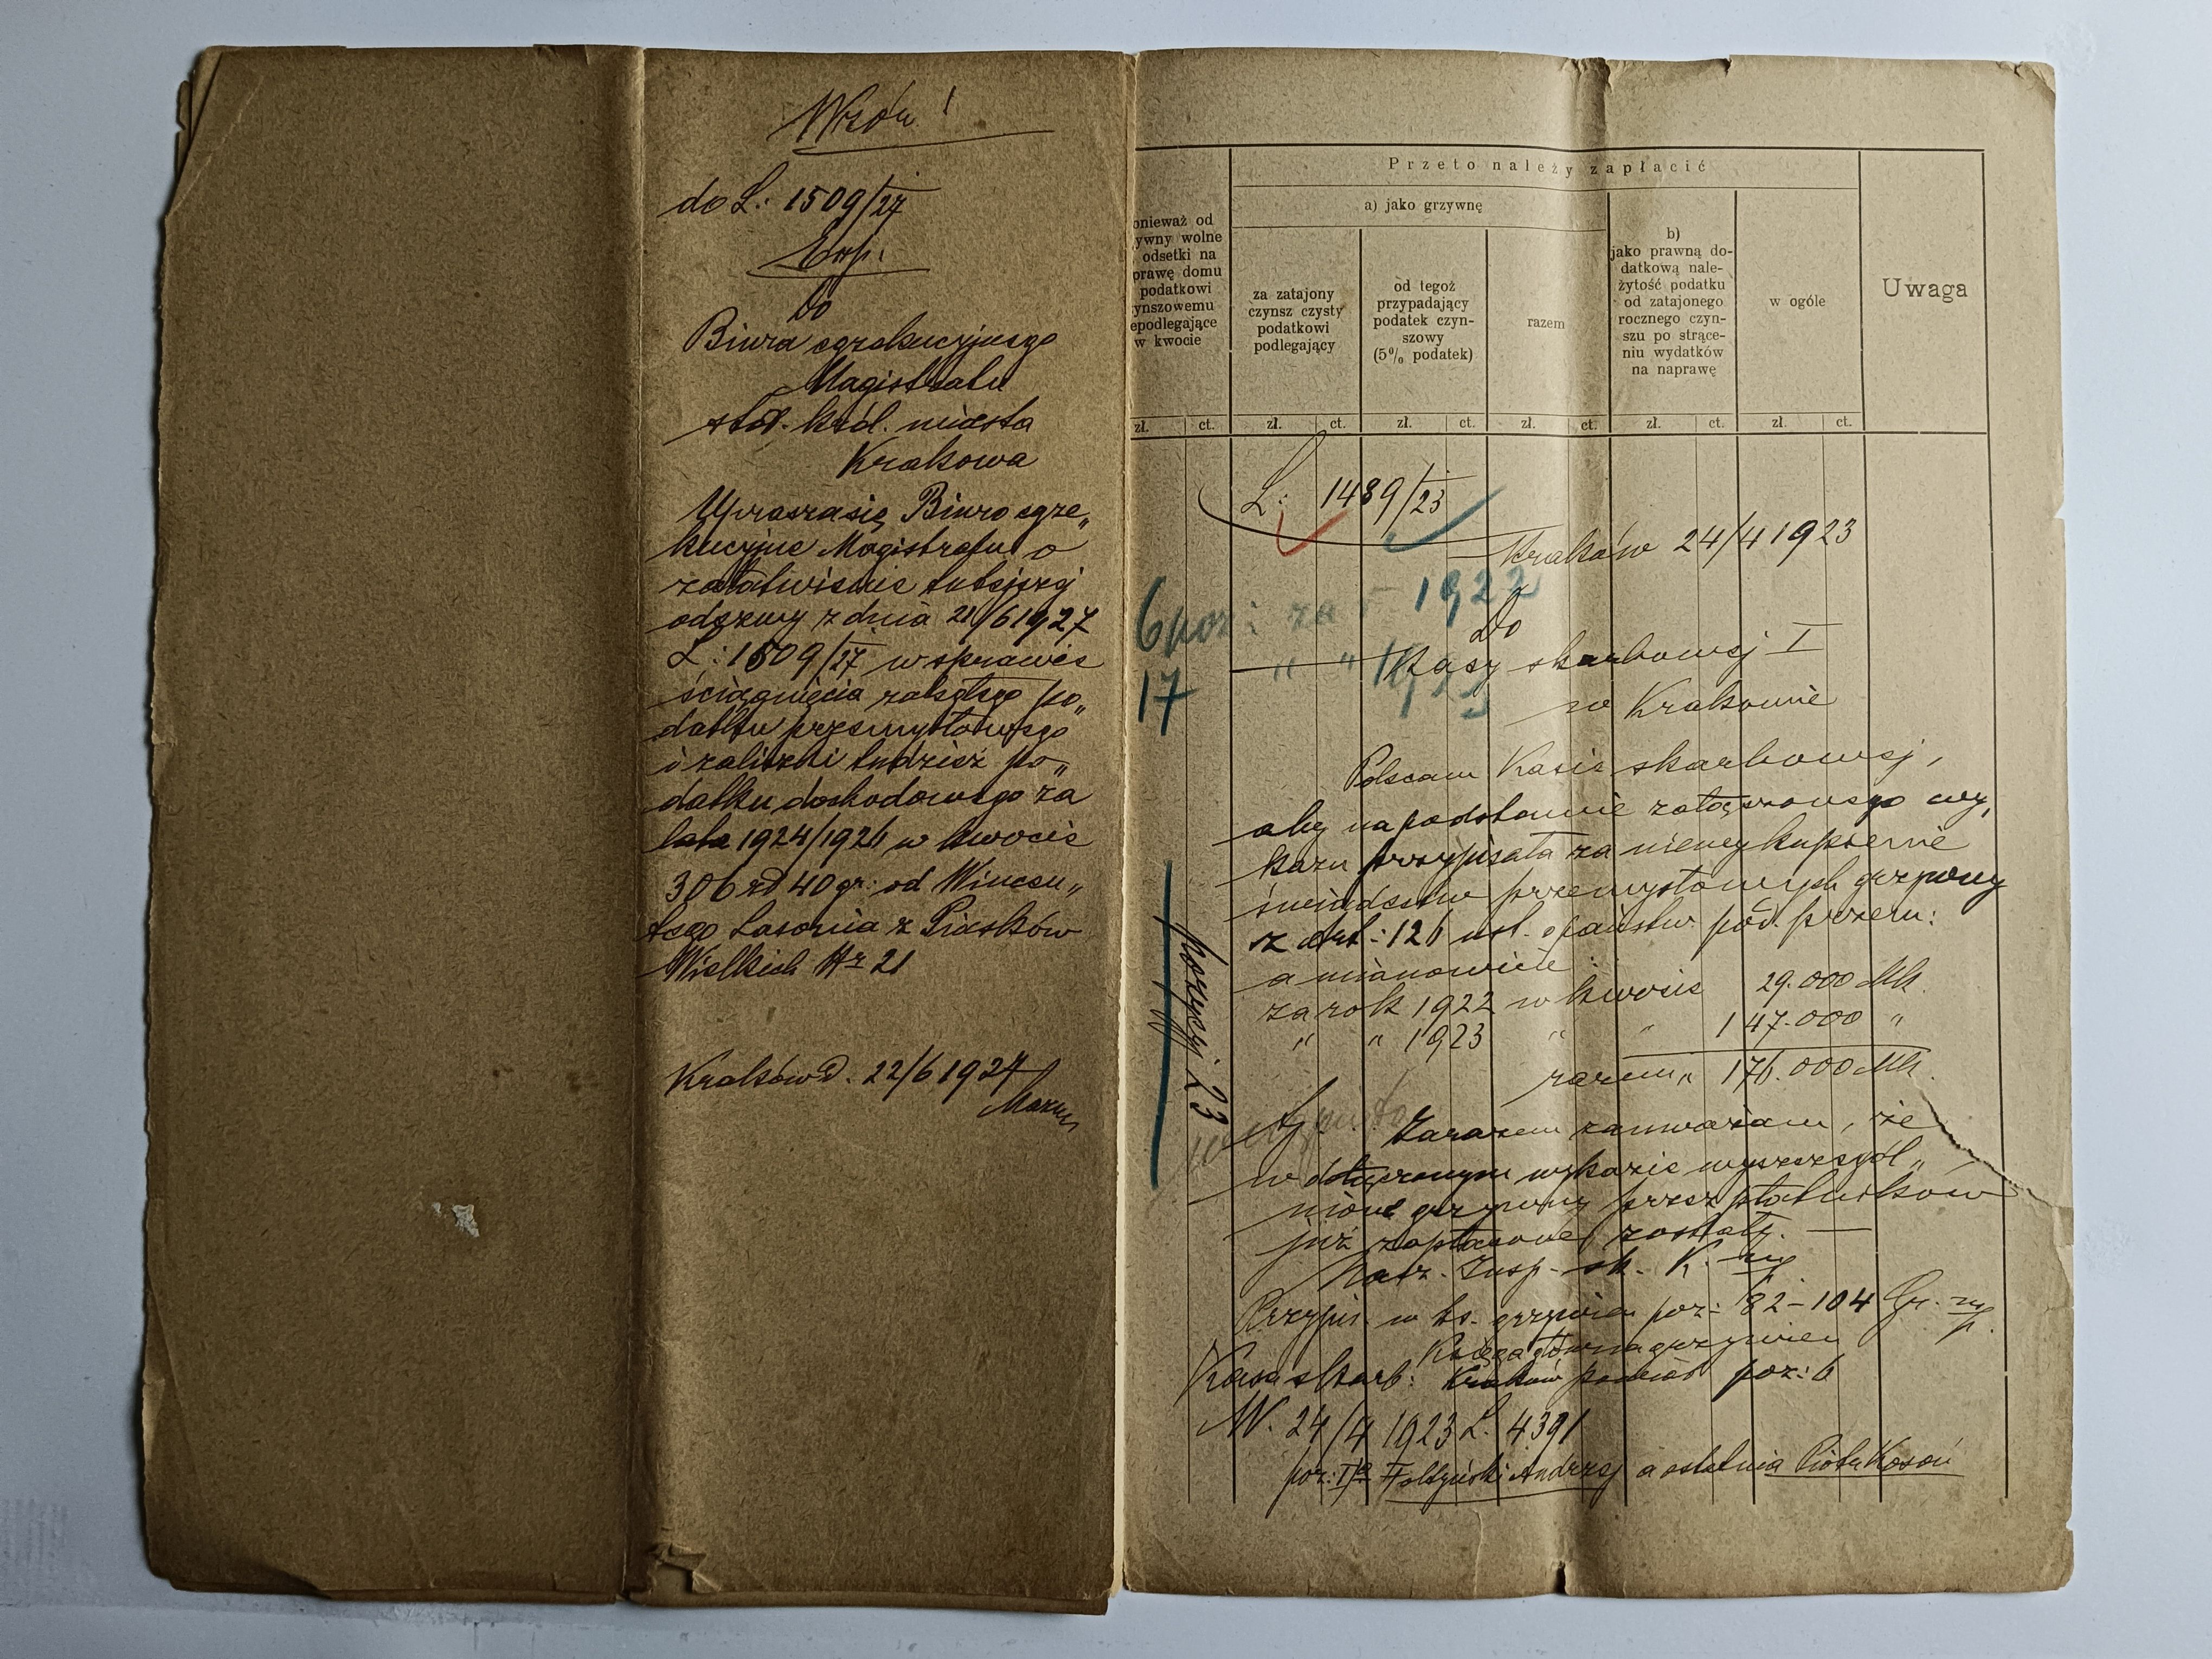 Wzór!
do L: 1509/27
Exp.
Do
Biura egzekucyjnego
Magistratu
stoł. król. miasta
Krakowa
Uprasza się Biuro egze„
kucyjne Magistratu o
załatwienie tutejszej
odezwy z dnia 21/6 1927
L: 1509/27 w sprawie
ściągnięcia zaległego po„
datku przemysłowego
i zaliczki tudzież po„
datku dochodowego za
lata 1924/1926 w kwocie
306 zł 40 gr: od Wincen„
tego Lasonia z Piasków
Wielkich Nr 21
Kraków d. 22/6 1927
Przeto należy zapłacić
a) jako grzywnę
onieważ od
ywny wolne
odsetki na
prawę domu
podatkowi
ynszowemu
epodlegające
w kwocie
za zatajony
czynsz czysty
podatkowi
podlegający
od tegoż
przypadający
podatek czyn-
szowy
(5% podatek)
razem
b)
jako prawną do-
datkową nale-
żytość podatku
od zatajonego
rocznego czyn-
szu po strące-
niu wydatków
na naprawę
w ogóle
Uwaga
zł. ct. zł. ct. zł. ct. zł. ct. zł. ct. zł. ct.
L: 1489/23
Kraków 24/4 1923
6 poz: za r 1922
17 " " 1923
Do
Kasy skarbowej I
w Krakowie
Polecam Kasie skarbowej,
aby na podstawie załączonego wy„
kazu przypisała za niewykupienie
świadectw przemysłowych grzywny
z art: 126 ust. o państw. pod. przem:
a mianowicie:
za rok 1922 w kwocie 29.000 Mk
" " 1923 " " 147.000 "
razem„ 176.000 Mk.
pozycyj 23
Zarazem zauważam, że
w dołączonym wykazie wyszczegól„
nione grzywny przez płatników
już zapłacone zostały. —
Nacz. Insp. sk. K. mp
Przypis. w ks. grzywien poz: 82–104 Gr. mp.
Księga główna grzywien
Kasa skarb: Kraków powiat poz: 6
W. 24/4 1923 L. 4391
poz: I<sup>a</sup> Foltyński Andrzej a ostatnia Piotr Kosoń